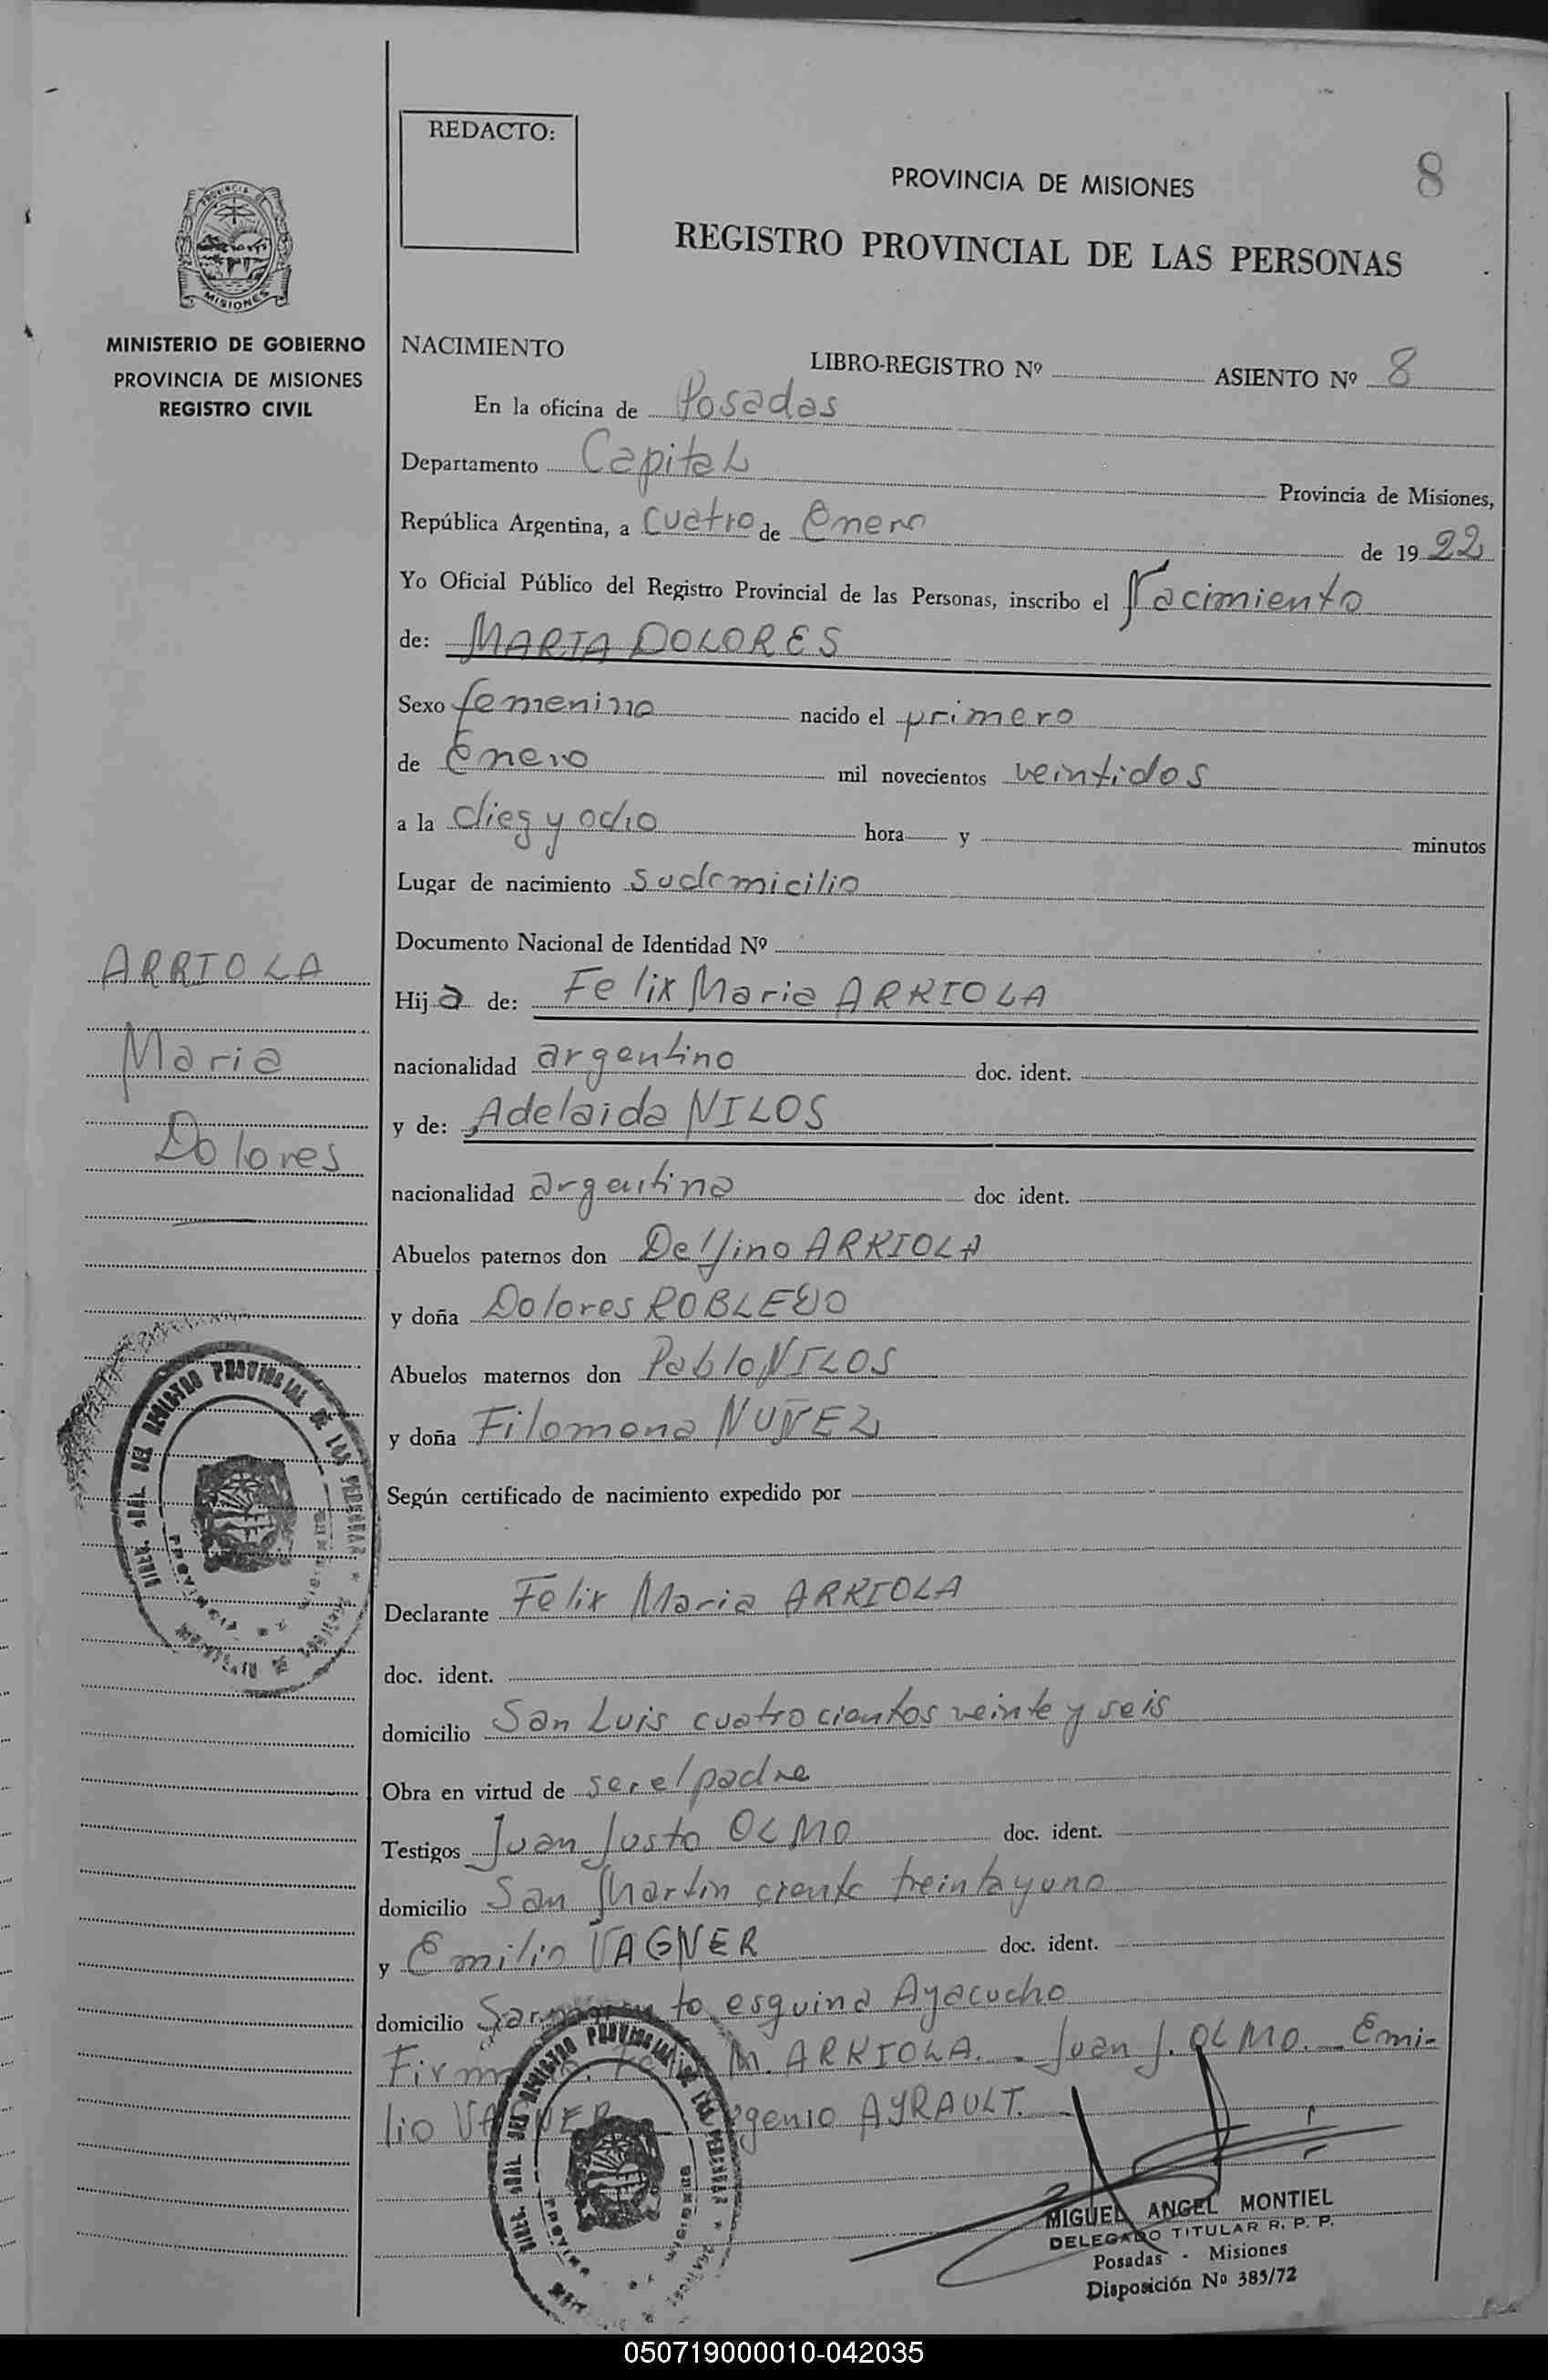 REDACTO:
PROVINCIA DE MISIONES
8
REGISTRO PROVINCIAL DE LAS PERSONAS
MISIONES
MINISTERIO DE GOBIERNO
PROVINCIA DE MISIONES
REGISTRO CIVIL
NACIMIENTO
LIBRO-REGISTRO Nº ASIENTO Nº 8
En la oficina de Posadas
Departamento Capital Provincia de Misiones,
República Argentina, a cuatro de Enero de 1922
Yo Oficial Público del Registro Provincial de las Personas, inscribo el Nacimiento
de: MARIA DOLORES
Sexo femenino nacido el primero
de Enero mil novecientos veintidos
a la diez y ocho hora y minutos
Lugar de nacimiento su domicilio
Documento Nacional de Identidad Nº
ARRIOLA
Maria
Dolores
Hija de: Felix Maria ARRIOLA
nacionalidad argentino doc. ident.
y de: Adelaida NILOS
nacionalidad argentina doc ident.
Abuelos paternos don Delfino ARRIOLA
y doña Dolores ROBLEDO
Abuelos maternos don Pablo NILOS
y doña Filomena NUÑEZ
Según certificado de nacimiento expedido por
Declarante Felix Maria ARRIOLA
doc. ident.
domicilio San Luis cuatrocientos veinte y seis
Obra en virtud de ser el padre
Testigos Juan Justo OLMO doc. ident.
domicilio San Martin ciento treinta y uno
y Emilio VAGNER doc. ident.
domicilio Sarmiento esquina Ayacucho
M. ARRIOLA.- Juan J. OLMO.- Emi-
lio VAGNER AYRAULT.-
MIGUEL ANGEL MONTIEL
DELEGADO TITULAR R. P. P.
Posadas - Misiones
Disposición Nº 385/72
DIREC. GRAL DEL REGISTRO PROVINCIAL DE LAS PERSONAS
DEL REGISTRO PROVINCIAL DE LAS PERSONAS
050719000010-042035